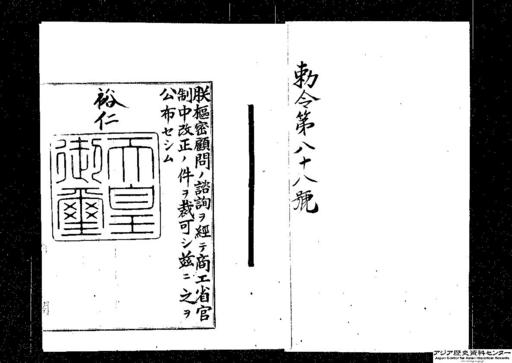 勅令第八十八號
朕樞密顧問ノ諮詢ヲ經テ商工省官
制中改正ノ件ヲ裁可シ茲ニ之ヲ
公布セシム
裕仁
天皇
御璽
アジア歴史資料センター
Japan Center for Asian Historical Records